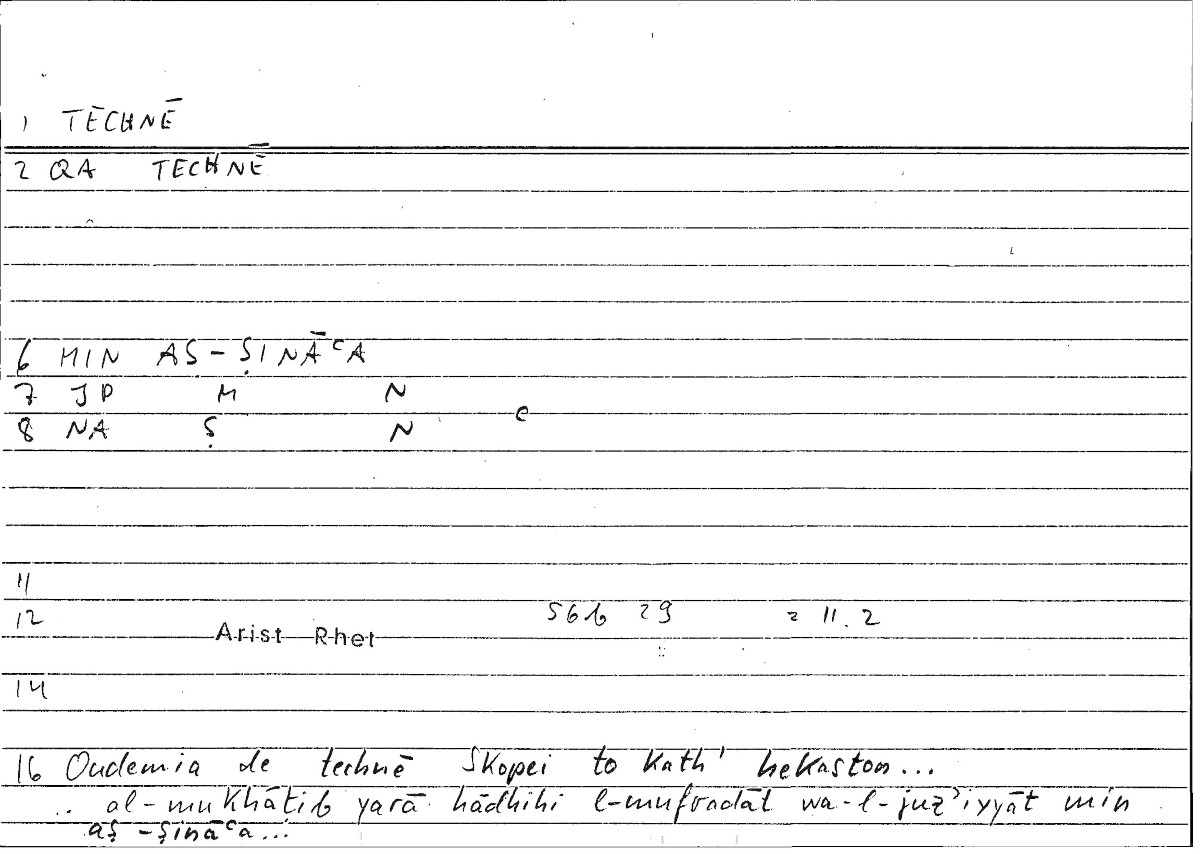 1 TĒCHNĒ
2 QA TECHNĒ
6 MIN AṢ-ṢINĀʿA
7 JP M N
8 NA Ṣ N e
11
12 Arist Rhet 56b 29 = 11.2
14
16 Oudemia de technē skopei to kath' hekaston...
.. al-mukhāṭib yarā hādhihi l-mufradāt wa-l-juzʾiyyāt min
aṣ-ṣināʿa...